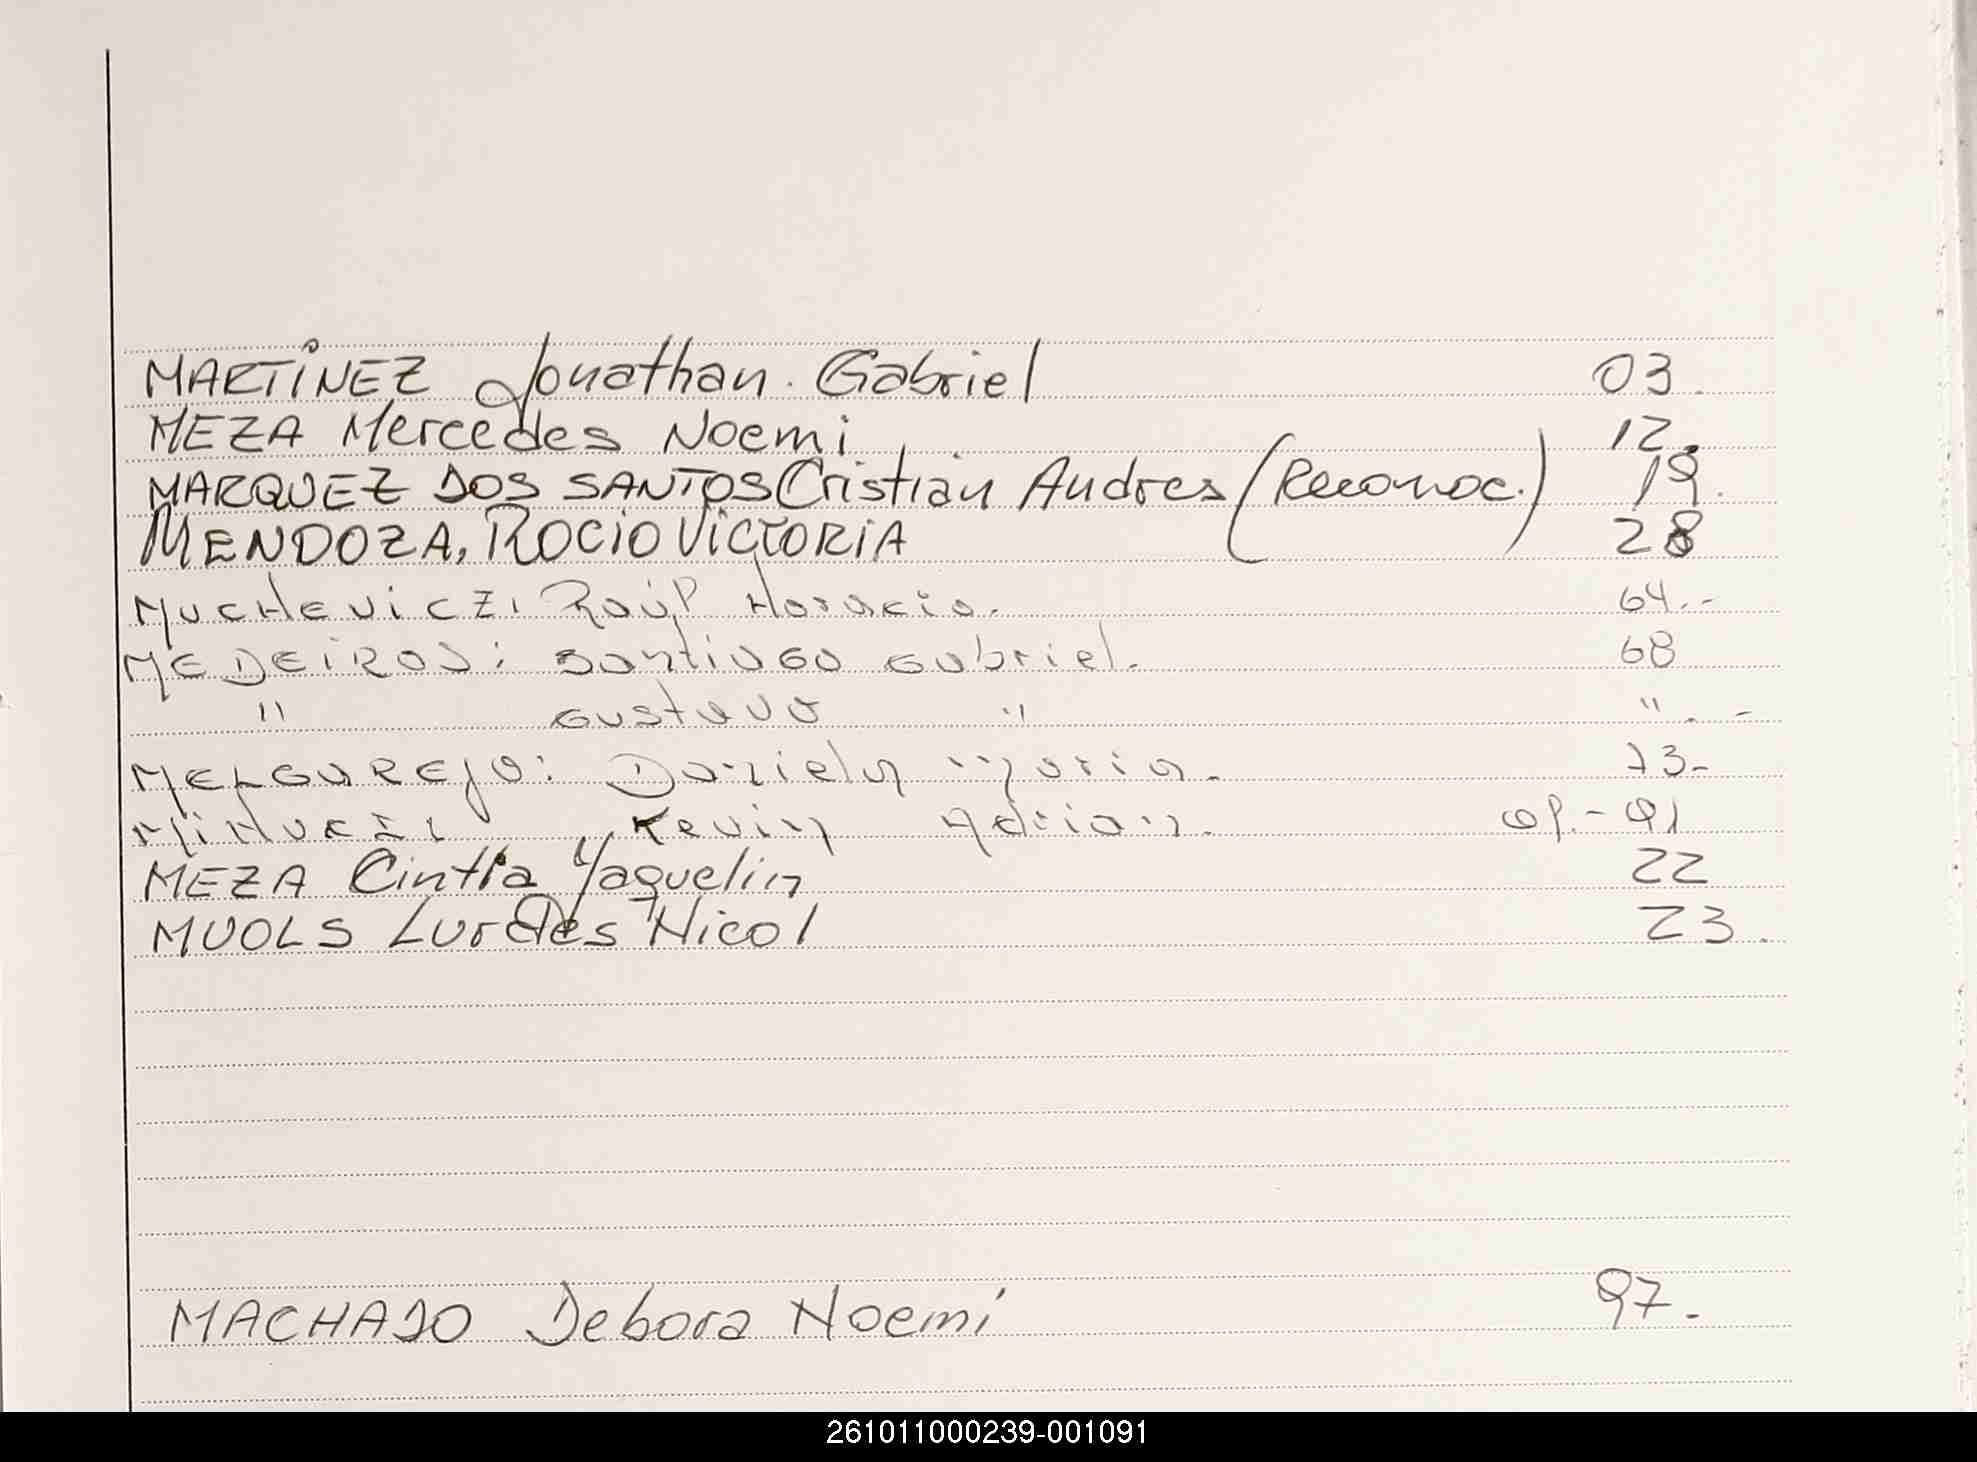 MARTÍNEZ Jonathan Gabriel 03.
MEZA Mercedes Noemi 12.
MARQUEZ DOS SANTOS Cristian Andres (Reconoc.) 19.
MENDOZA, ROCIO VICTORIA 28
MUCHEVICZ, Raúl Horacio. 64.-
MEDEIROS: Santiago Gabriel. 68
" Gustavo " ". -
MELGAREJO: Daniela Maria. 73-
Kevin Adrian. 91
MEZA Cintia Yaquelin 22
MUOLS Lurdes Nicol 23.
MACHADO Debora Noemi 97.
261011000239-001091